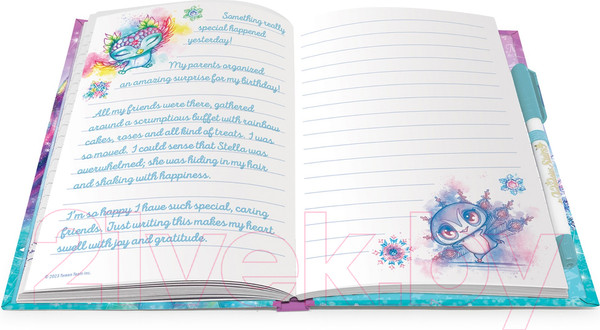 Something really
special happened
yesterday!
My parents organized
an amazing surprise for my birthday!
All my friends were there, gathered
around a scrumptious buffet with rainbow
cakes, roses and all kind of treats. I was
so moved. I could sense that Stella was
overwhelmed; she was hiding in my hair
and shaking with happiness.
I'm so happy I have such special, caring
friends. Just writing this makes my heart
swell with joy and gratitude.
21vek.by